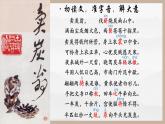 ·初读文，准字音，解大意
卖炭翁，伐薪烧炭南山中。
满面尘灰烟火色，两鬓苍苍十指黑。
卖炭得钱何所营？身上衣裳口中食。
可怜身上衣正单，心忧炭贱愿天寒。
夜来城外一尺雪，晓驾炭车辗冰辙。
牛困人饥日已高，市南门外泥中歇。
翩翩两骑来是谁？黄衣使者白衫儿。
手把文书口称敕，回车叱牛牵向北。
一车炭，千余斤，宫使驱将惜不得。
半匹红纱一丈绫，系向牛头充炭直。